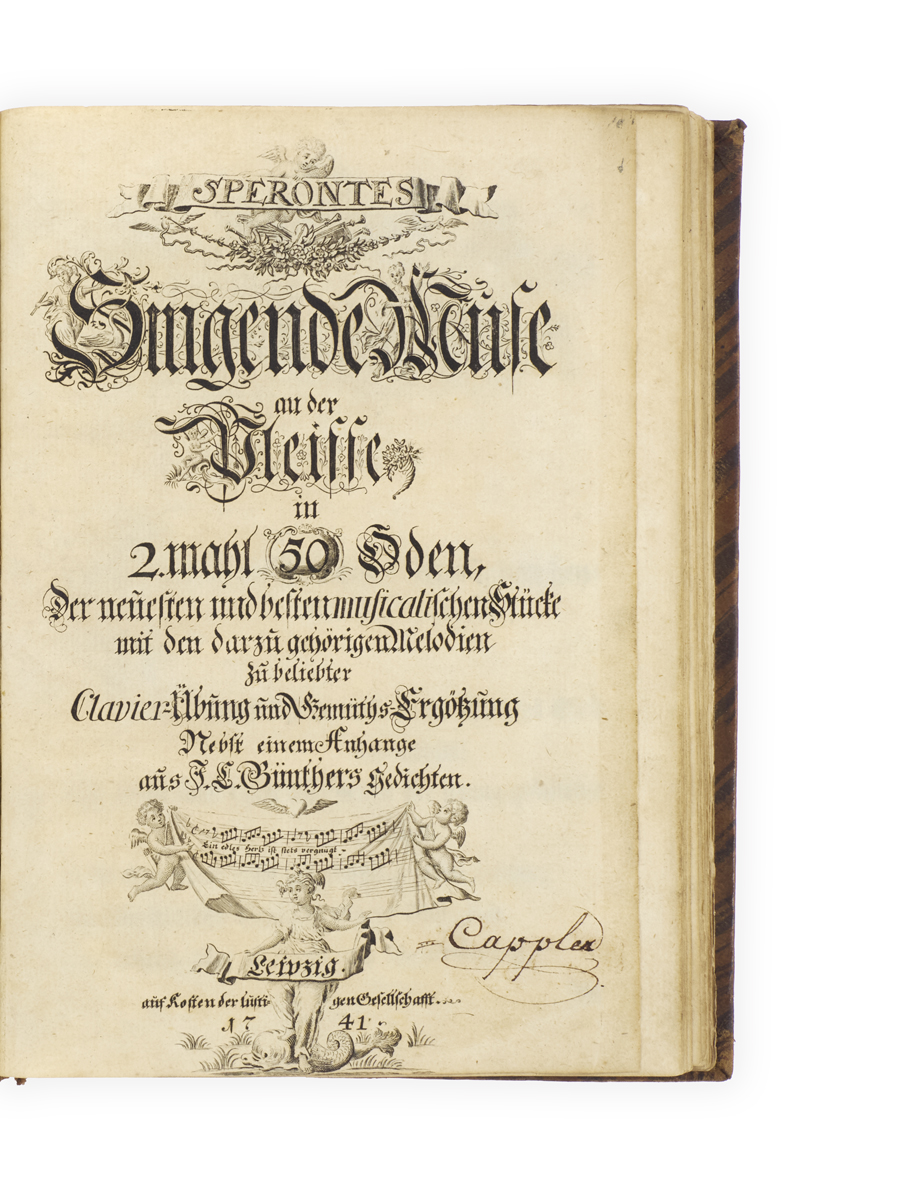 SPERONTES
Singende Muse
an der
Pleisse
in
2. mahl 50 Oden,
Der neuesten und besten musicalischen Stücke
mit den darzu gehörigen Melodien
zu beliebter
Clavier-Übung und Gemüths-Ergötzung
Nebst einem Anhange
aus J. C. Günthers Gedichten.
Ein edles Hertz ist stets vergnügt
Capplen
Leipzig.
auf Kosten der lusti- gen Gesellschafft.
17 41.